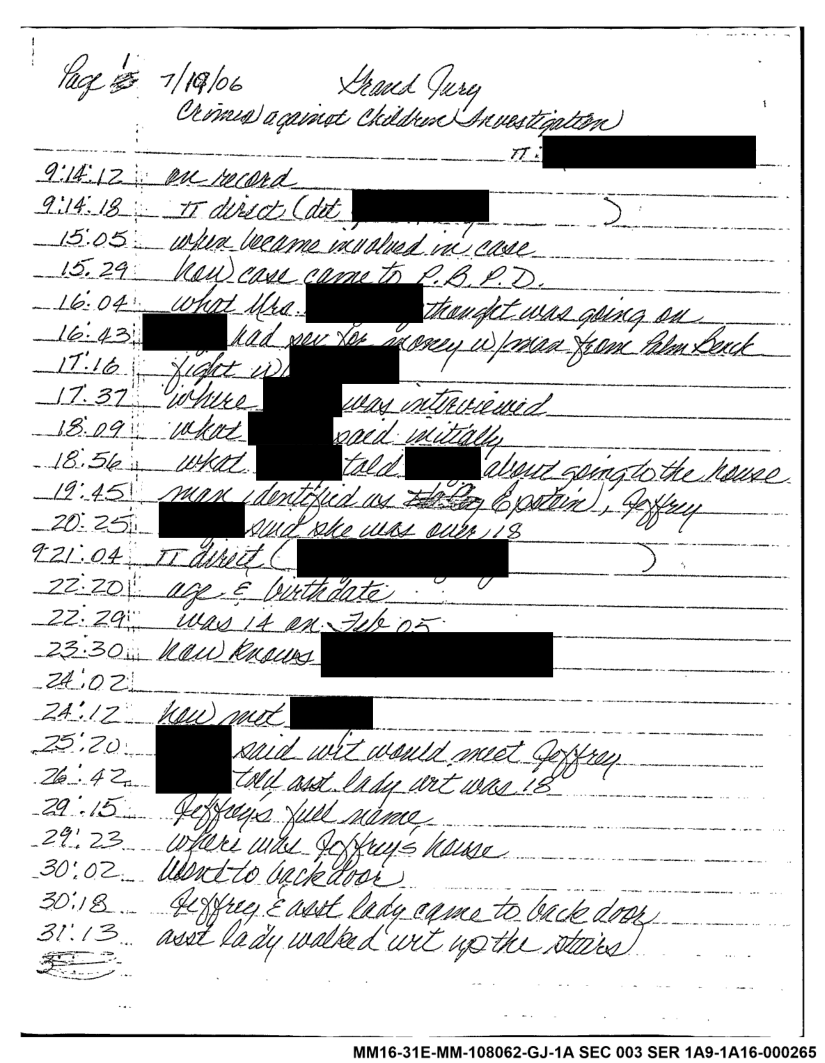 Page 1 7/19/06 Grand Jury
Crimes against Children Investigation
π:
9:14:12 on record
9:14:18 π direct (det )
15:05 when became involved in case
15:29 how case came to P.B.P.D.
16:04 what Mrs. thought was going on
16:43 had sex for money w/man from Palm Beach
17:16 fight w/
17:37 where was interviewed
18:09 what said initially
18:56 what told about going to the house
19:45 man identified as Epstein, Jeffrey
20:25 said she was over 18
9:21:04 π direct ( )
22:20 age & birthdate
22:29 was 14 on Feb 05
23:30 how knows
24:02
24:12 how met
25:20 said wit would meet Jeffrey
26:42 told asst lady wit was 18
29:15 Jeffrey's full name
29:23 where was Jeffrey's house
30:02 went to back door
30:18 Jeffrey & asst lady came to back door
31:13 asst lady walked wit up the stairs
MM16-31E-MM-108062-GJ-1A SEC 003 SER 1A9-1A16-000265